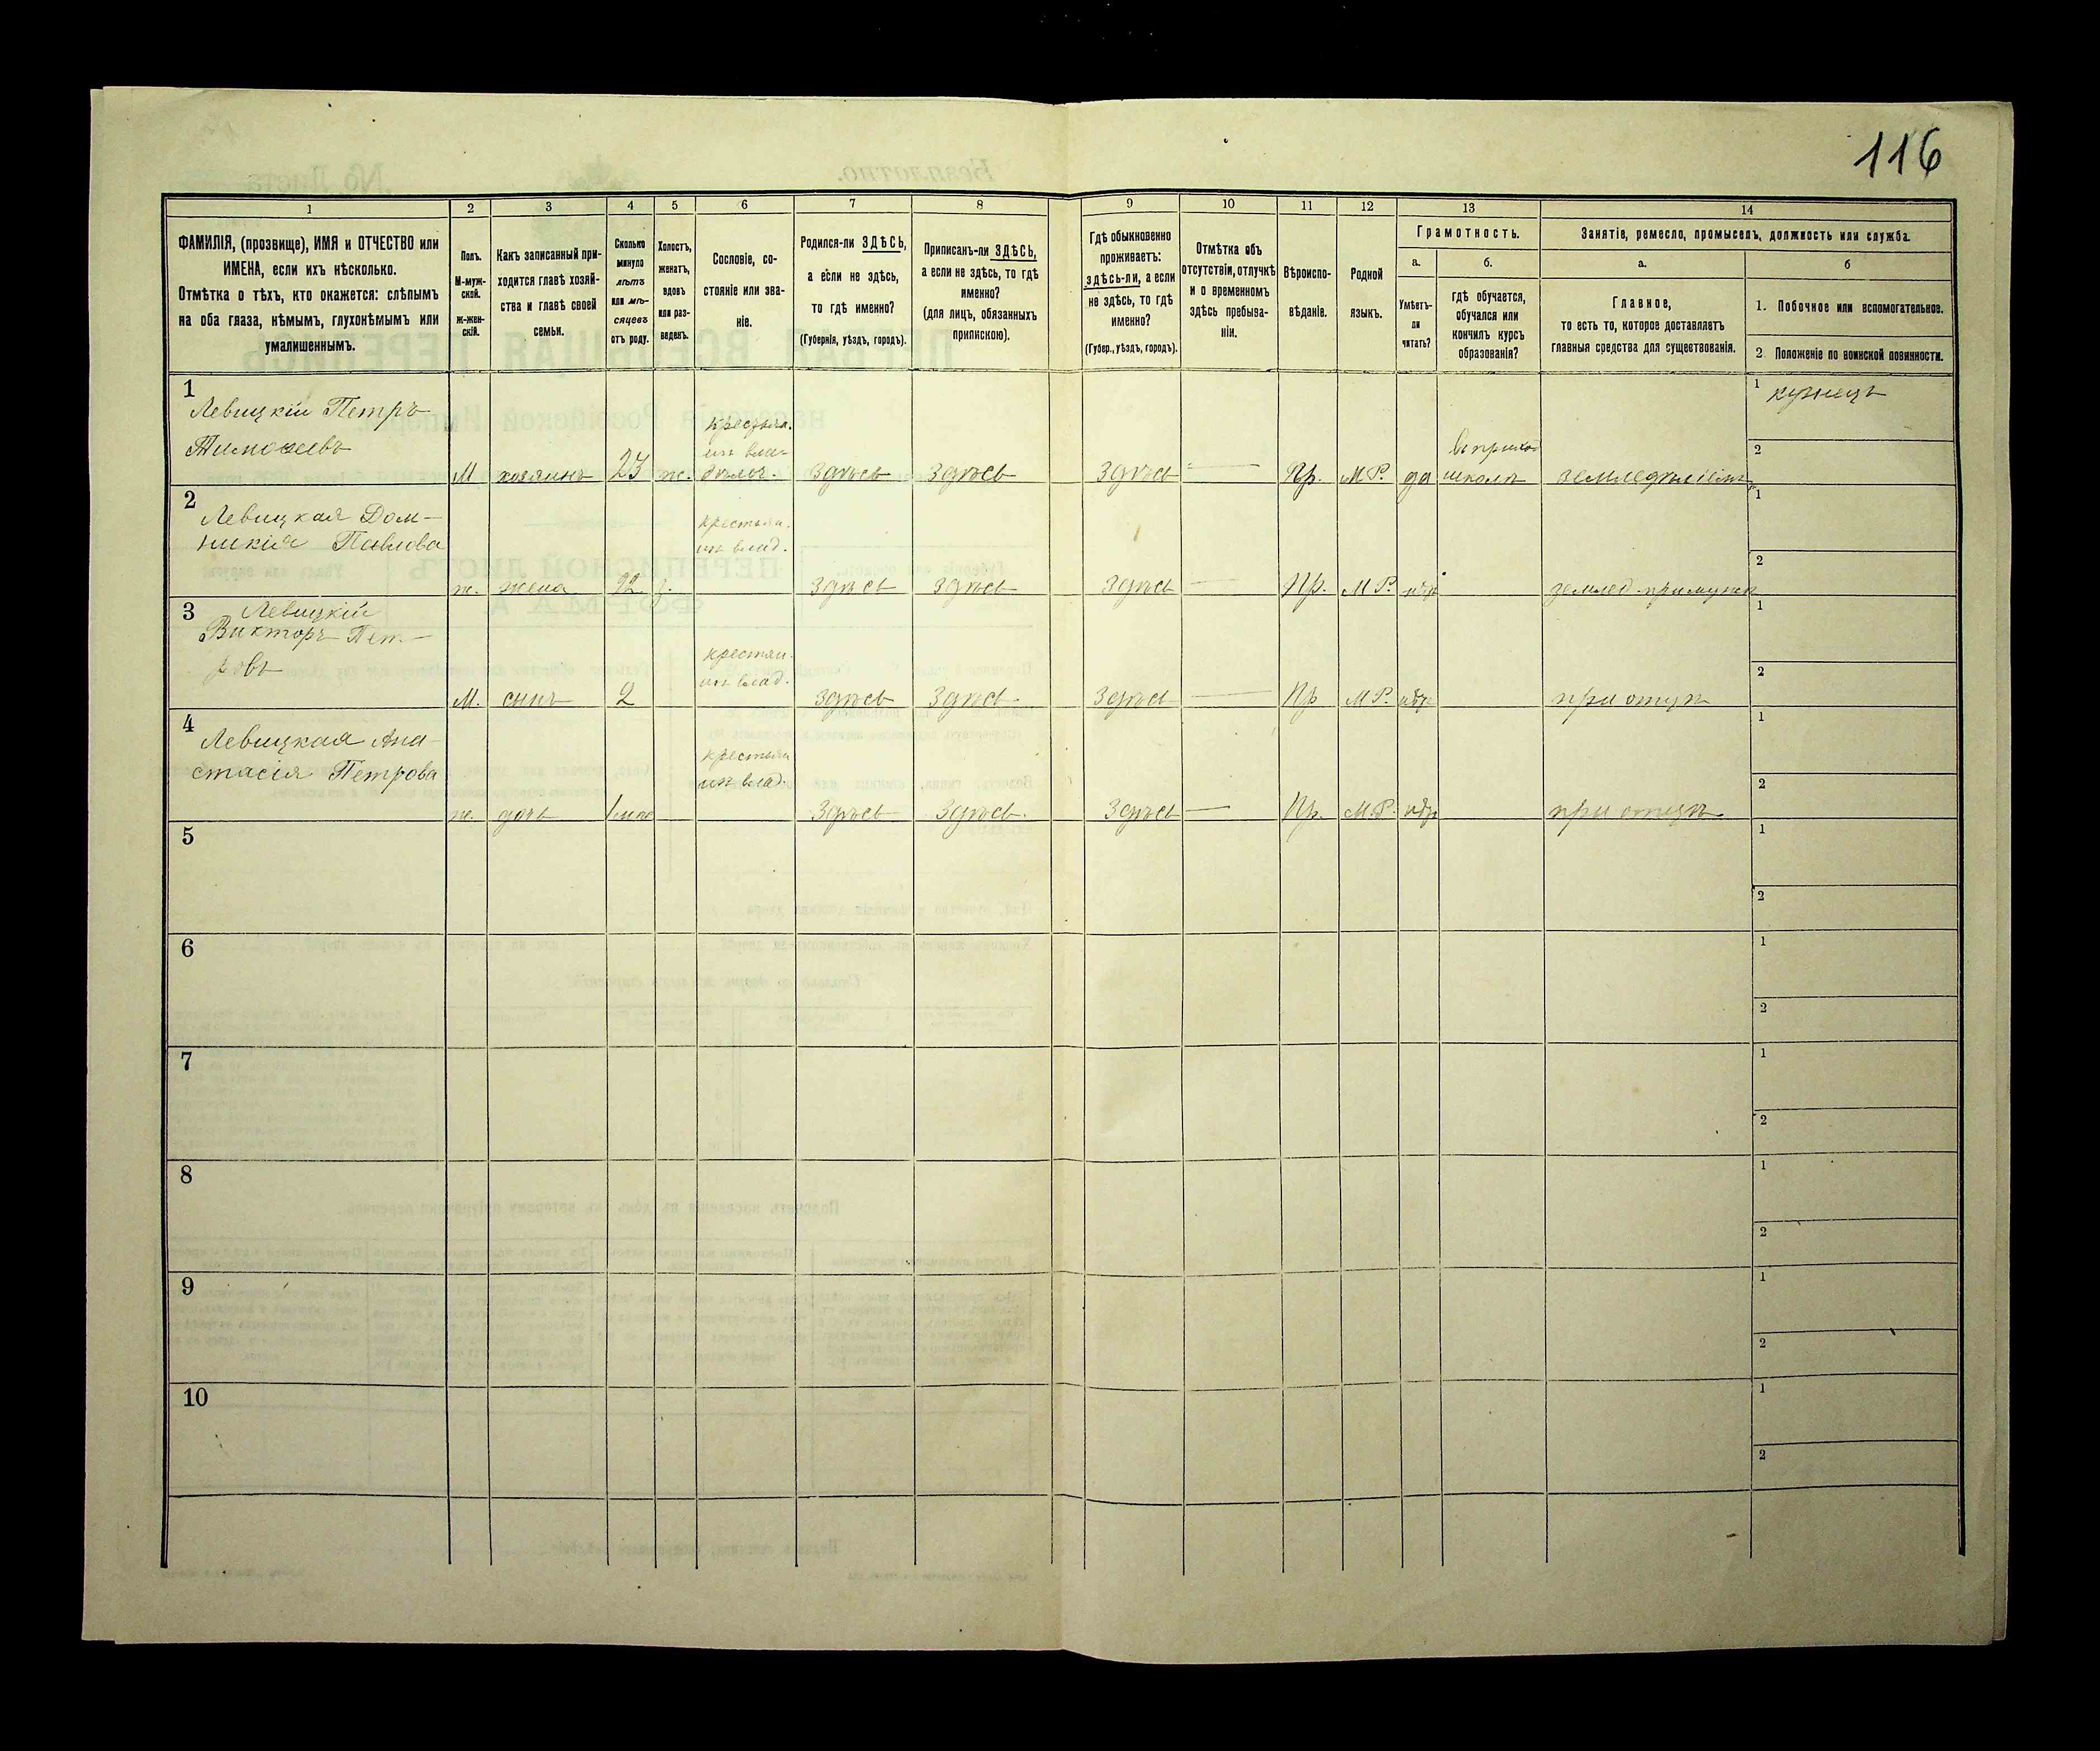 116
1
2
3
4
5
6
7
8
9
10
11
12
13
14
ФАМИЛІЯ, (прозвище), ИМЯ и ОТЧЕСТВО или
ИМЕНА, если ихъ нѣсколько.
Отмѣтка о тѣхъ, кто окажется: слѣпымъ
на оба глаза, нѣмымъ, глухонѣмымъ или
умалишеннымъ.
Полъ.
М-муж-
ской.
Ж-жен-
скій.
Какъ записанный при-
ходится главѣ хозяй-
ства и главѣ своей
семьи.
Сколько
минуло
лѣтъ
или мѣ-
сяцевъ
отъ роду.
Холостъ,
женатъ,
вдовъ
или раз-
веденъ.
Сословіе, со-
стояніе или зва-
ніе.
Родился-ли ЗДѢСЬ,
а если не здѣсь,
то гдѣ именно?
(Губернія, уѣздъ, городъ).
Приписанъ-ли ЗДѢСЬ,
а если не здѣсь, то гдѣ
именно?
(для лицъ, обязанныхъ
припискою).
Гдѣ обыкновенно
проживаетъ:
здѣсь-ли, а если
не здѣсь, то гдѣ
именно?
(Губер., уѣздъ, городъ).
Отмѣтка объ
отсутствіи, отлучкѣ
и о временномъ
здѣсь пребыва-
ніи.
Вѣроиспо-
вѣданіе.
Родной
языкъ.
Грамотность.
а.
б.
Умѣетъ-
ли
читать?
гдѣ обучается,
обучался или
кончилъ курсъ
образованія?
Занятіе, ремесло, промыселъ, должность или служба.
а.
б
Главное,
то есть то, которое доставляетъ
главныя средства для существованія.
1. Побочное или вспомогательное.
2. Положеніе по воинской повинности.
1
Левицкій Петръ
Тимофеевъ
М хозяинъ 23 ж.
крестьян.
изъ вла-
дѣльч.
Здѣсь Здѣсь Здѣсь — Пр. М.Р. да
въ приход
школѣ
земледѣліемъ
1 кузнецъ
2
2
Левицкая Дом-
никія Павлова
ж. жена 22
крестьян.
изъ влад.
Здѣсь Здѣсь Здѣсь — Пр. М.Р.
землед. при мужѣ
1
2
3
Левицкій
Викторъ Пет-
ровъ
М. сынъ 2
крестьян.
изъ влад.
Здѣсь Здѣсь Здѣсь — Пр М.Р.
при отцѣ
1
2
4
Левицкая Ана-
стасія Петрова
ж. дочь
крестьян
изъ влад.
Здѣсь Здѣсь. Здѣсь — Пр. М.Р.
при отцѣ
1
2
5
1
2
6
1
2
7
1
2
8
1
2
9
1
2
10
1
2